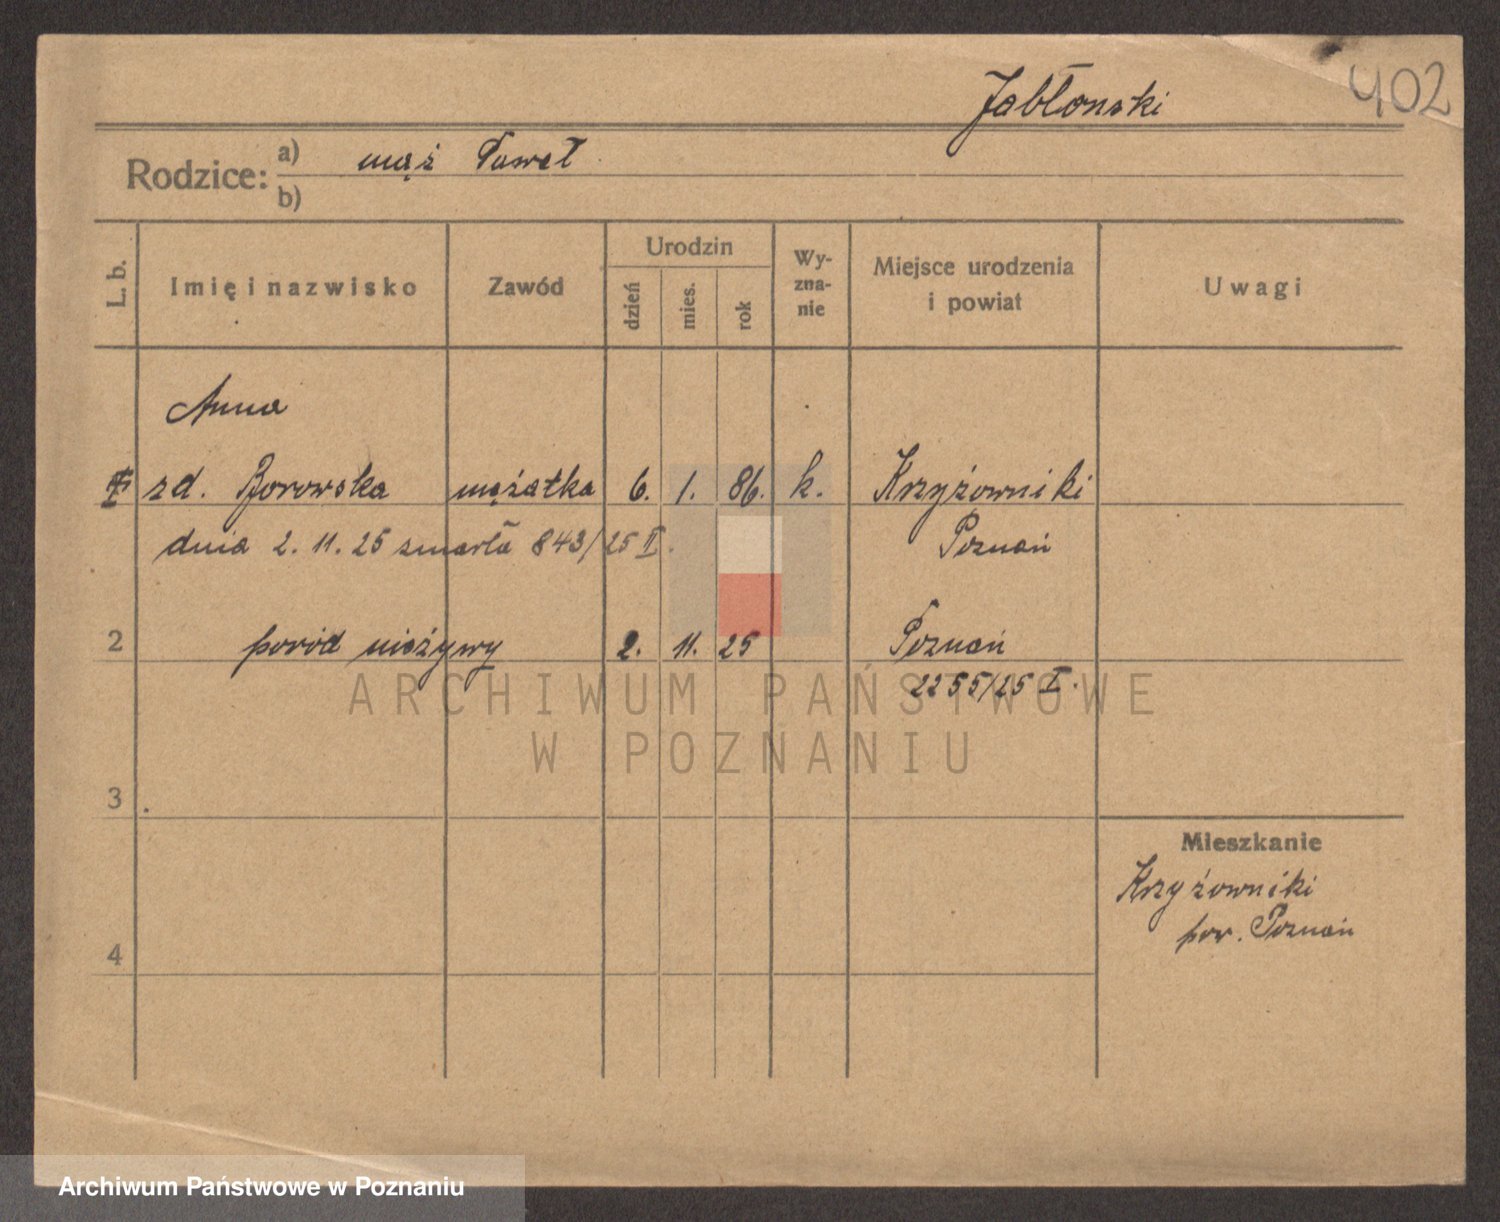 402
Jabłonski
Rodzice: a) mąż Paweł
b)
L. b. Imię i nazwisko Zawód Urodzin dzień mies. rok Wy-zna-nie Miejsce urodzenia i powiat Uwagi
Anna
zd. Borowska mężatka 6. 1. 86. k. Krzyżowniki
dnia 2. 11. 25 zmarła 843/25 II. Poznań
2 poród nieżywy 2. 11. 25 Poznań
2255/25 I.
ARCHIWUM PAŃSTWOWE
W POZNANIU
3
Mieszkanie
Krzyżowniki
pow. Poznań
4
Archiwum Państwowe w Poznaniu